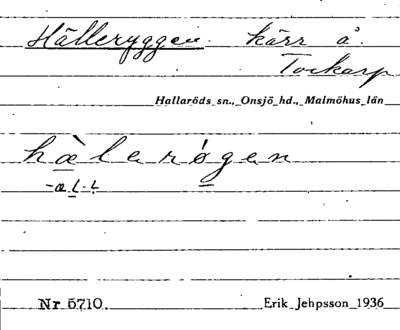 Hälleryggen kärr å.
Tockarp
Hallaröds sn., Onsjö hd., Malmöhus län
hæ̀lerǿgen
-æl-l
Nr 5710. Erik Jehpsson 1936